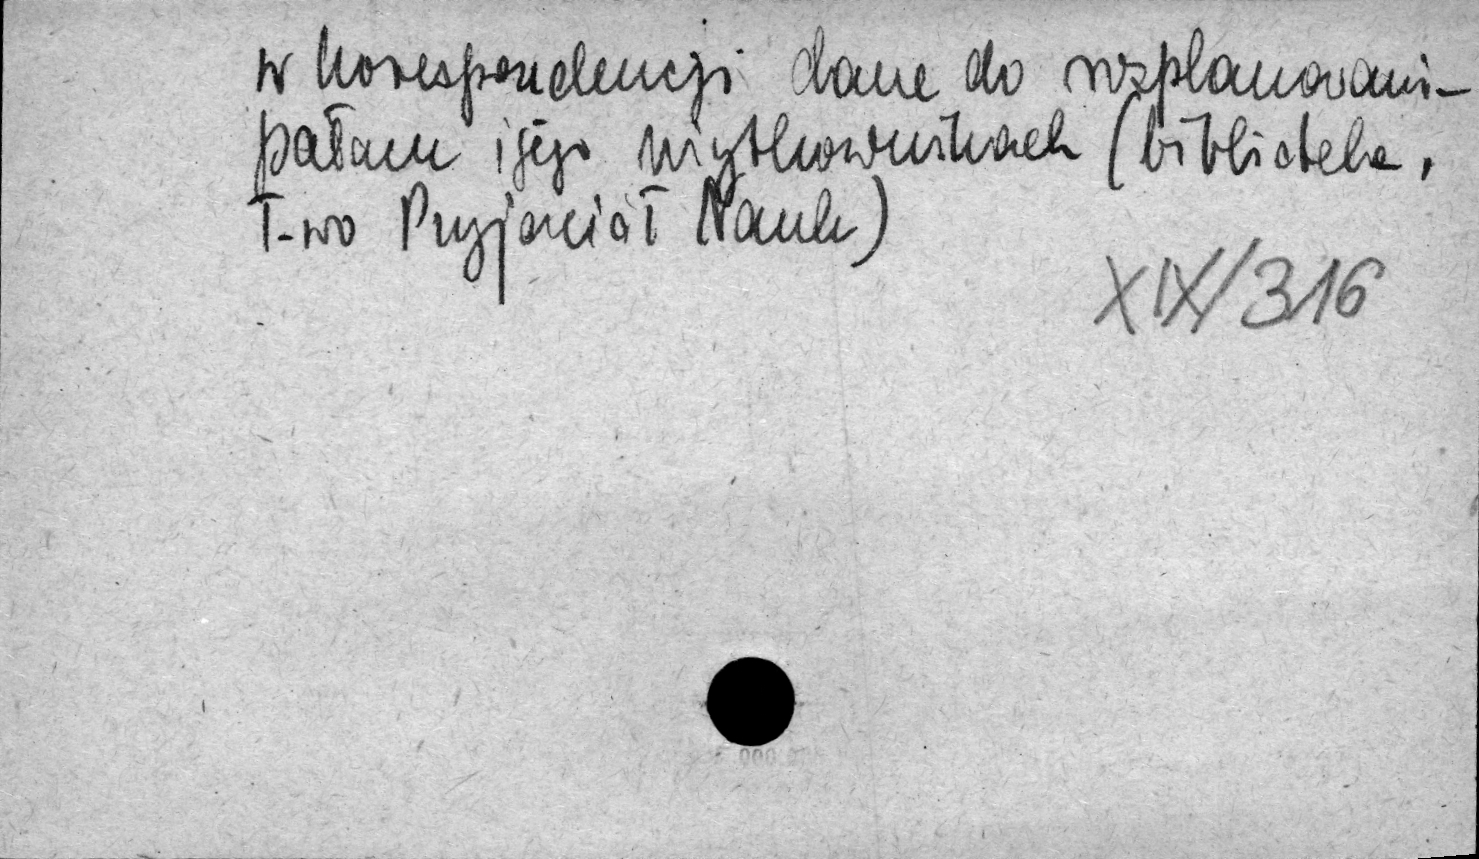 w korespondencji dane do rozplanowani-
pałacu i jego użytkownikach (biblioteka,
T-wo Przyjaciół Nauk)
XIX/316